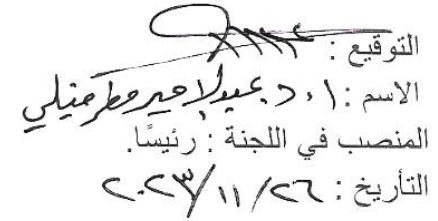 التوقيع :
الاسم : ا. د. عبدالامير مطر فنيلي
المنصب في اللجنة : رئيسًا.
التأريخ : ٢٦ / ١١ / ٢٠٢٣